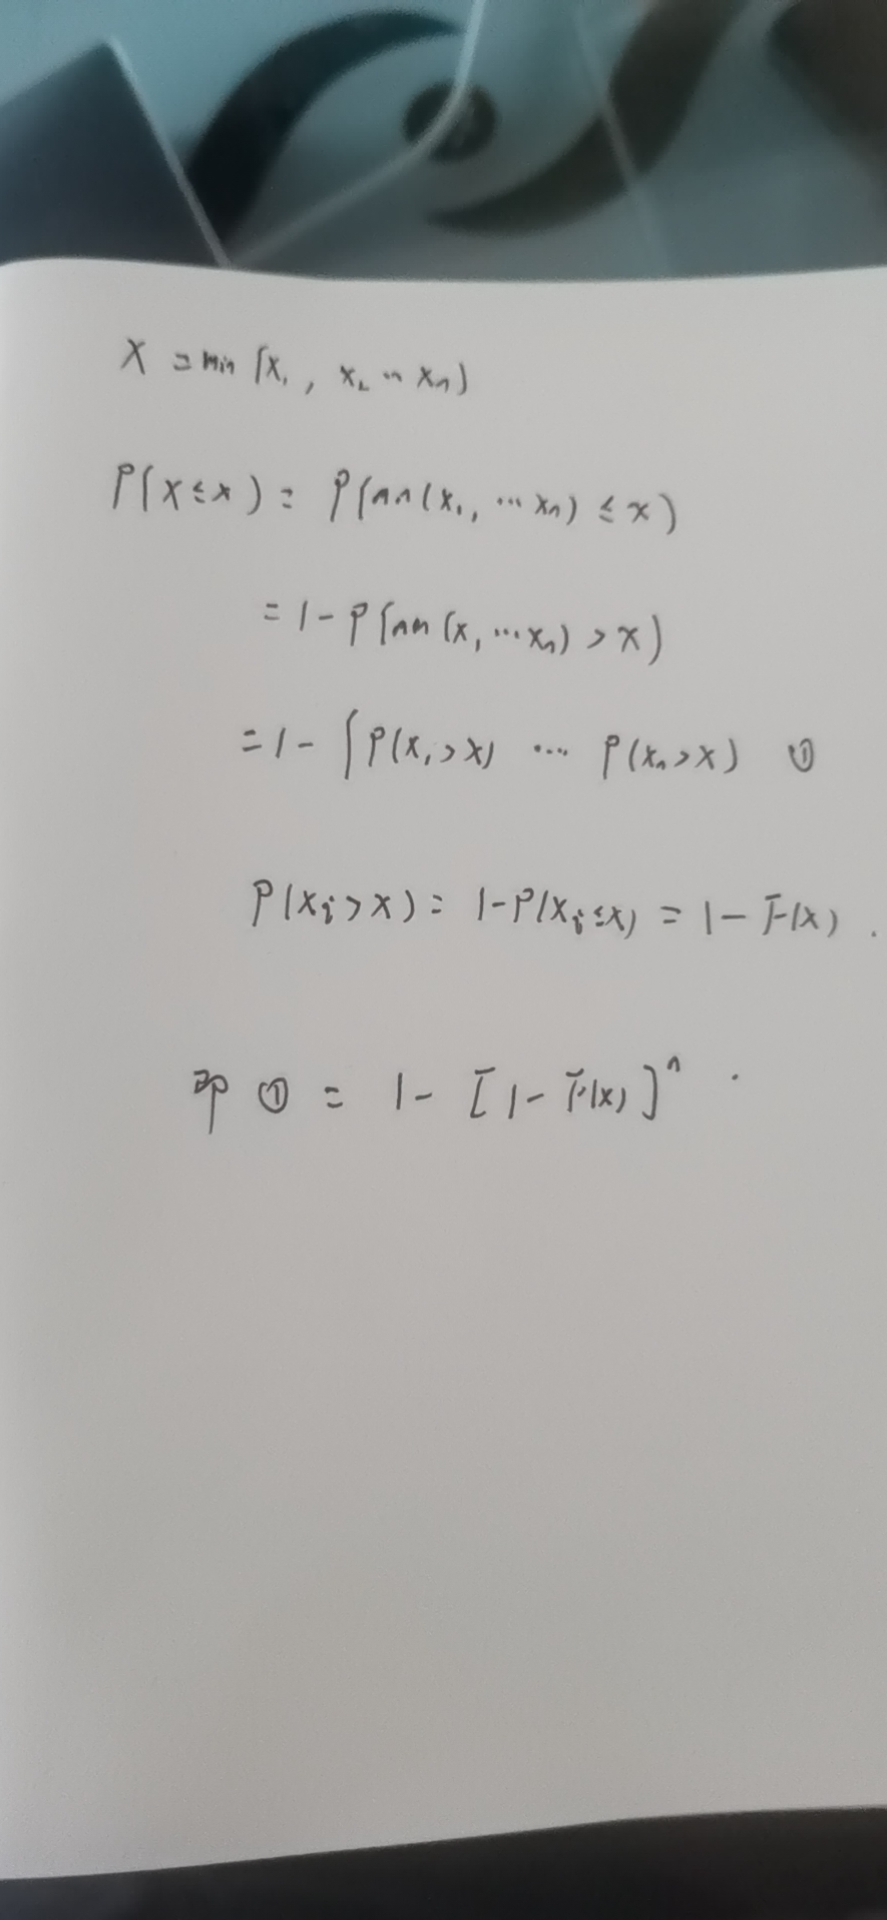 X = min (X₁, X₂ … Xₙ)
P(X ≤ x) = P(min(X₁, … Xₙ) ≤ x)
= 1 - P(min(X₁ … Xₙ) > x)
= 1 - [P(X₁ > x) … P(Xₙ > x) ①
P(Xᵢ > x) = 1 - P(Xᵢ ≤ x) = 1 - F(x) .
即 ① = 1 - [1 - F(x)]ⁿ .